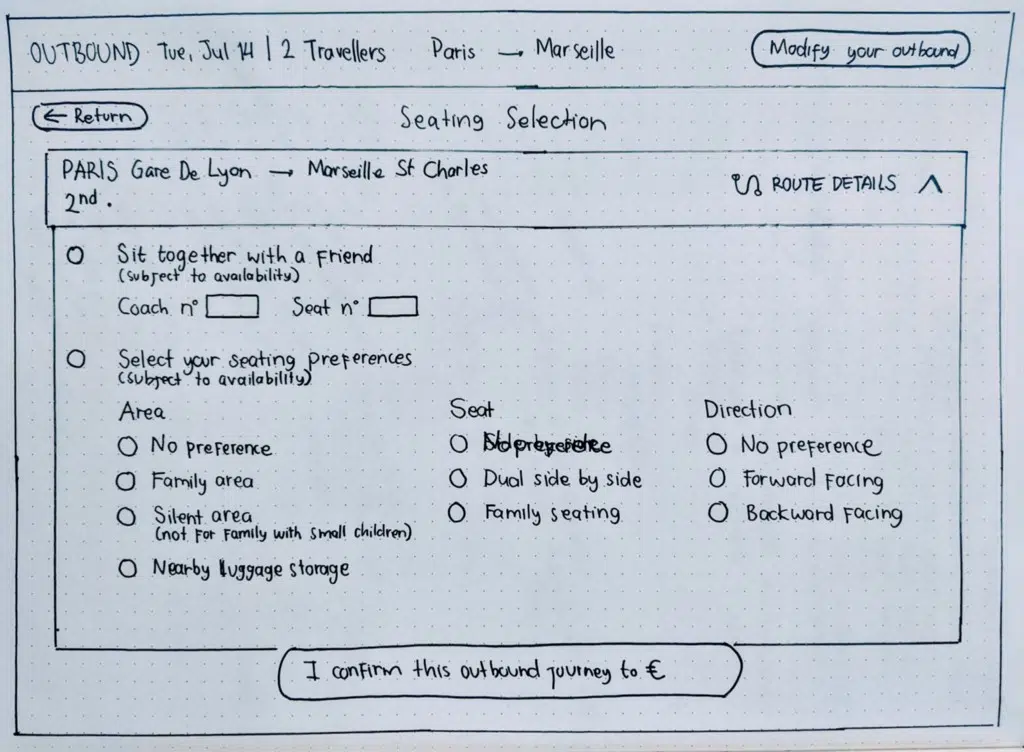 OUTBOUND Tue, Jul 14 | 2 Travellers Paris → Marseille Modify your outbound
← Return
Seating Selection
PARIS Gare De Lyon → Marseille St Charles
2nd.
ROUTE DETAILS
Sit together with a friend
(subject to availability)
Coach n° Seat n°
Select your seating preferences
(subject to availability)
Area
No preference
Family area
Silent area
(not for family with small children)
Nearby luggage storage
Seat
Dual side by side
Family seating
Direction
No preference
Forward facing
Backward facing
I confirm this outbound journey to €